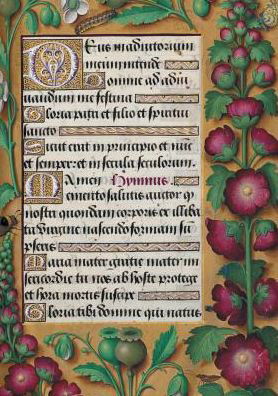 Deus in adiutorium
meum intende
Domine ad adiu
uandum me festina
Gloria patri et filio et spiritui
sancto
Sicut erat in principio et nunc
et semper: et in secula seculorum.
Amen Hymnus.
Memento salutis auctor q
nostri quondam corporis ex illiba
ta Virgine nascendo formam sũ
pseris
Maria mater gratie mater mi
sericordie tu nos ab hoste protege
et hora mortis suscipe
Gloria tibi domine qui natus